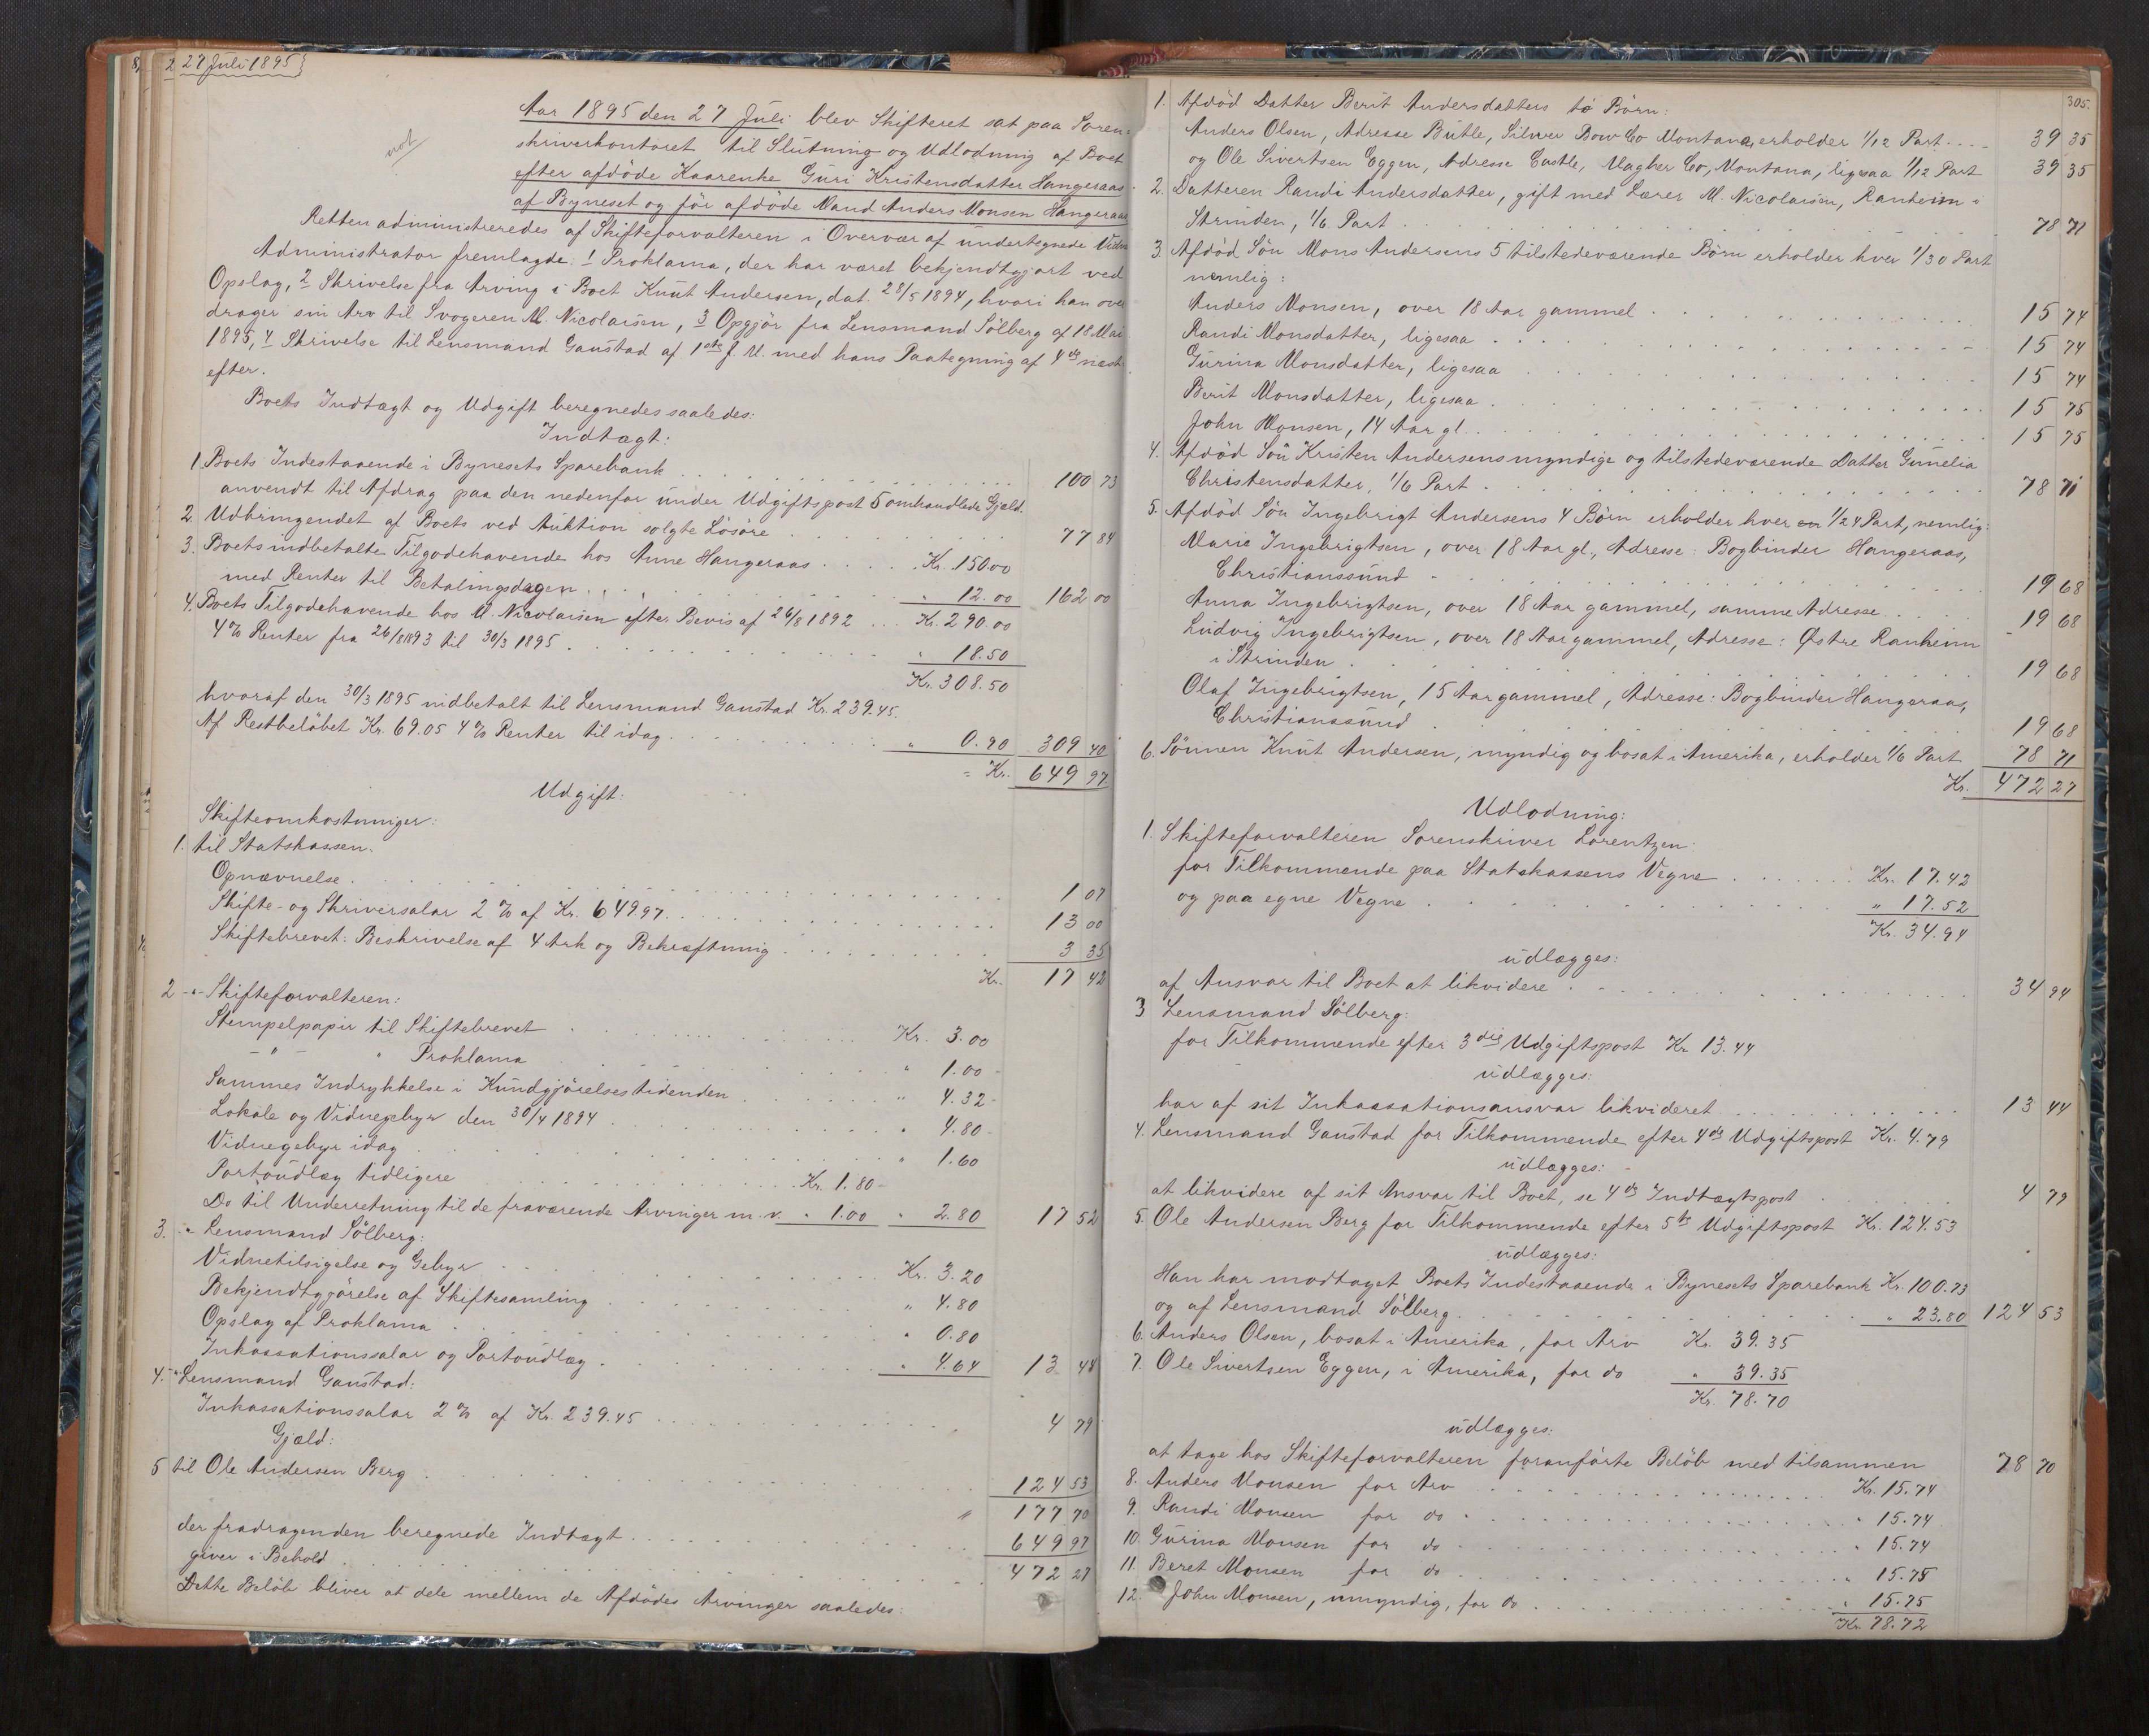 27 Juli 1895
not
Aar 1895 den 27 Juli blev Skifteret sat paa Soren-
skriverkontoret til Slutning og Udlodning af Boet
efter afdöde Kaarenke Guri Kristensdatter Hangeraas
af Byneset og för afdöde Mand Anders Monsen Hangeraas
Retten administreredes af Skifteforvalteren i Overvær af undertegnede Vidner
Administrator fremlagde: 1 Proklama, der har været bekjendtgjort ved
Opslag, 2 Skrivelse fra Arving i Boet Knut Andersen, dat. 28/5 1894, hvori han over
drager sin Arv til Svogeren M. Nicolaisen, 3 Opgjör fra Lensmand Sölberg af 18 Mai
1895, 4 Skrivelse til Lensmand Ganstad af 1ste f. M. med hans Paategning af 4de næst
efter.
Boets Indtægt og Udgift beregnedes saaledes:
Indtægt:
1. Boets Indestaaende i Bynesets Sparebank . . . 100 73
anvendt til Afdrag paa den nedenfor under Udgiftspost 5 omhandlede Gjæld.
2. Udbringendet af Boets ved Auktion solgte Lösöre . . . 77 84
3. Boets indbetalte Tilgodehavende hos Anne Hangeraas . . . Kr. 150.00
med Renter til Betalingsdagen . . . " 12.00 162 00
4. Boets Tilgodehavende hos M. Nicolaisen efter Bevis af 26/8 1892 . . . Kr. 290.00
4% Renter fra 26/8 1893 til 30/3 1895 . . . " 18.50
Kr. 308.50
hvoraf den 30/3 1895 indbetalt til Lensmand Ganstad Kr. 239.45.
Af Restbelöbet Kr. 69.05 4% Renter til idag . . . " 0.90 309 40
= Kr. 649 97
Udgift:
Skifteomkostninger:
1. til Statskassen.
Opnævnelse . . . 1 07
Skifte- og Skriversalar 2% af Kr. 649.97 . . . 13 00
Skiftebrevet: Beskrivelse af 4 Ark og Bekræftning . . . 3 35
Kr. 17 42
2 -"- Skifteforvalteren:
Stempelpapir til Skiftebrevet . . . Kr. 3.00
-"- " Proklama . . . " 1.00
Sammes Indrykkelse i Kundgjörelsestidenden . . . " 4.32
Lokale og Vidnegebyr den 30/4 1894 . . . " 4.80
Vidnegebyr idag . . . " 1.60
Portoudlæg tidligere . . . Kr. 1.80
Do til Underretning til de fraværende Arvinger m.v. " 1.00 " 2.80 17 52
3. " Lensmand Sölberg:
Vidnetilsigelse og Gebyr . . . Kr. 3.20
Bekjendtgjörelse af Skiftesamling . . . " 4.80
Opslag af Proklama . . . " 0.80
Inkassationssalar og Portoudlæg . . . " 4.64 13 44
4. " Lensmand Ganstad:
Inkassationssalar 2% af Kr. 239.45 . . . 4 79
Gjæld:
5 til Ole Andersen Berg . . . 124 53
177 70
der fradragenden beregnede Indtægt . . . 649 97
giver i Behold . . . 472 27
Dette Belöb bliver at dele mellem de Afdödes Arvinger saaledes:
305.
1. Afdöd Datter Berit Andersdatters to Börn:
Anders Olsen, Adresse Butle, Silwer Bow Co Montana, erholder 1/12 Part . . . 39 35
og Ole Sivertsen Eggen, Adresse Castle, Magher Co, Montana, ligesaa 1/12 Part 39 35
2. Datteren Randi Andersdatter, gift med Lærer M. Nicolaisen, Ranheim i
Strinden, 1/6 Part . . . 78 71
3. Afdöd Sön Mons Andersens 5 tilstedeværende Börn erholder hver 1/30 Part
nemlig:
Anders Monsen, over 18 Aar gammel . . . 15 74
Randi Monsdatter, ligesaa . . . 15 74
Gurina Monsdatter, ligesaa . . . 15 74
Berit Monsdatter, ligesaa . . . 15 75
John Monsen, 14 Aar gl. . . . 15 75
4. Afdöd Sön Kristen Andersens myndige og tilstedeværende Datter Gunelia
Christensdatter, 1/6 Part . . . 78 71
5. Afdöd Sön Ingebrigt Andersens 4 Börn erholder hver en 1/24 Part, nemlig:
Marie Ingebrigtsen, over 18 Aar gl., Adresse: Bogbinder Hangeraas,
Christianssund . . . 19 68
Anna Ingebrigtsen, over 18 Aar gammel, samme Adresse . . . 19 68
Ludvig Ingebrigtsen, over 18 Aar gammel, Adresse: Østre Ranheim
i Strinden . . . 19 68
Olaf Ingebrigtsen, 15 Aar gammel, Adresse: Bogbinder Hangeraas,
Christianssund . . . 19 68
6. Sönnen Knut Andersen, myndig og bosat i Amerika, erholder 1/6 Part 78 71
Kr. 472 27
Udlodning:
1. Skifteforvalteren Sorenskriver Lorentzen:
for Tilkommende paa Statskassens Vegne . . . Kr. 17.42
og paa egne Vegne . . . " 17.52
Kr. 34.94
udlægges:
af Ansvar til Boet at likvidere . . . 34 94
3 Lensmand Sölberg:
for Tilkommende efter 3die Udgiftspost Kr 13.44
udlægges:
har af sit Inkassationsansvar likvideret . . . 13 44
4. Lensmand Ganstad for Tilkommende efter 4de Udgiftspost Kr. 4.79
udlægges:
at likvidere af sit Ansvar til Boet, se 4de Indtægtspost . . . 4 79
5. Ole Andersen Berg for Tilkommende efter 5te Udgiftspost Kr. 124.53
udlægges:
Han har modtaget Boets Indestaaende i Bynesets Sparebank Kr. 100.73
og af Lensmand Sölberg . . . " 23.80 124 53
6. Anders Olsen, bosat i Amerika, for Arv Kr. 39.35
7. Ole Sivertsen Eggen, i Amerika, for do " 39.35
Kr. 78.70
udlægges:
at tage hos Skifteforvalteren foranförte Belöb med tilsammen 78 70
8. Anders Monsen for Arv . . . Kr. 15.74
9. Randi Monsen for do . . . " 15.74
10. Gurina Monsen for do . . . " 15.74
11. Beret Monsen for do . . . " 15.75
12. John Monsen, umyndig, for do . . . " 15.75
Kr. 78.72